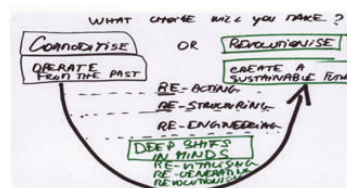 WHAT CHOICE WILL YOU MAKE?
COMMODITISE OR REVOLUTIONISE
OPERATE FROM THE PAST
CREATE A SUSTAINABLE
RE-ACTING
RE-STRUCTURING
RE-ENGINEERING
DEEP SHIFTS
IN MINDS
RE-VITALISING
RE-GENERATING
REVOLUTIONISING